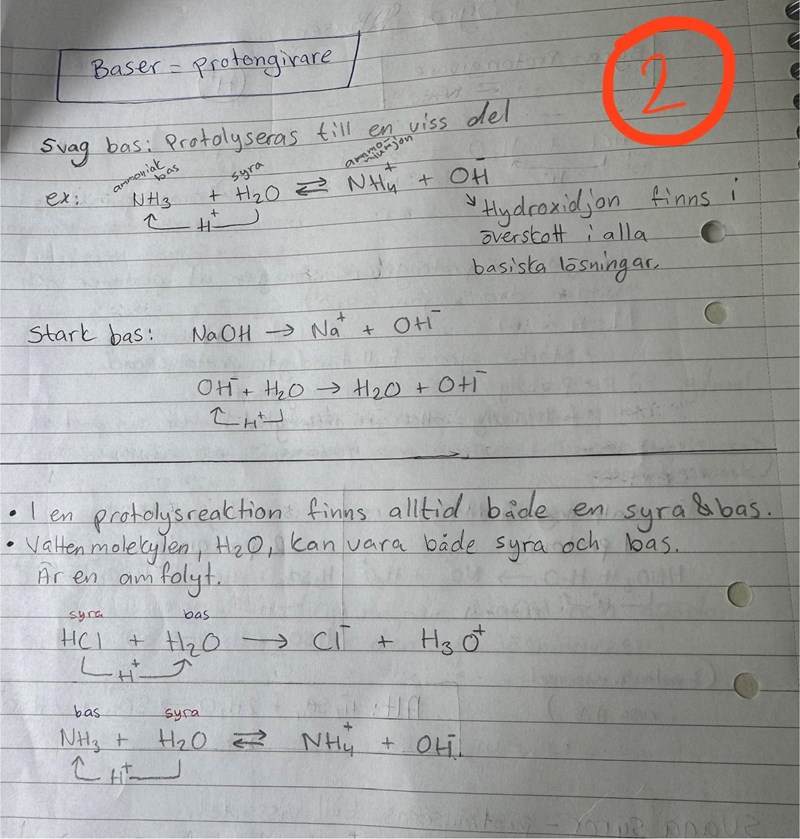 2
Baser = protongivare
Svag bas: Protolyseras till en viss del
ammoniak bas syra ammoniumjon
ex: NH₃ + H₂O ⇌ NH₄⁺ + OH⁻
H⁺
↘ Hydroxidjon finns i
överskott i alla
basiska lösningar.
Stark bas: NaOH → Na⁺ + OH⁻
OH⁻ + H₂O → H₂O + OH⁻
H⁺
• I en protolysreaktion finns alltid både en syra & bas.
• Vattenmolekylen, H₂O, kan vara både syra och bas.
Är en amfolyt.
syra bas
HCl + H₂O → Cl⁻ + H₃O⁺
H⁺
bas syra
NH₃ + H₂O ⇌ NH₄⁺ + OH⁻.
H⁺